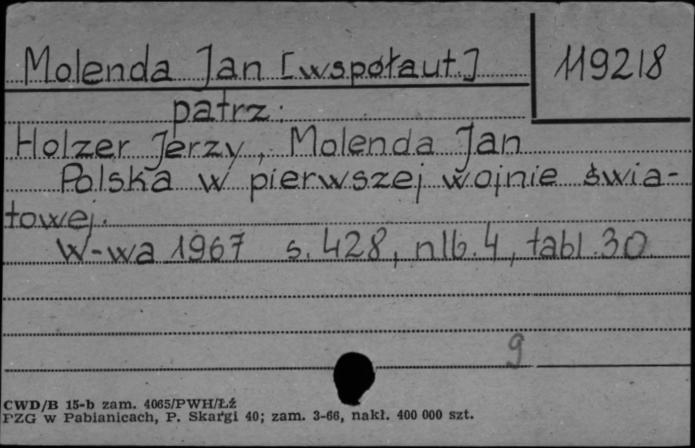 Molenda Jan [współaut.]
119218
patrz:
Holzer Jerzy, Molenda Jan
Polska w pierwszej wojnie świa-
towej.
W-wa 1967 s. 428, nlb. 4, tabl. 30.
9
CWD/B 15-b zam. 4065/PWH/Łź
PZG w Pabianicach, P. Skargi 40; zam. 3-66, nakł. 400 000 szt.